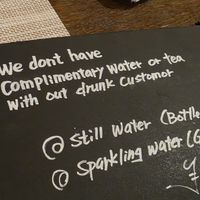 We don't have
Complimentary water or tea
with out drunk customor
@ Still water (Bottle
@ Sparkling water (G